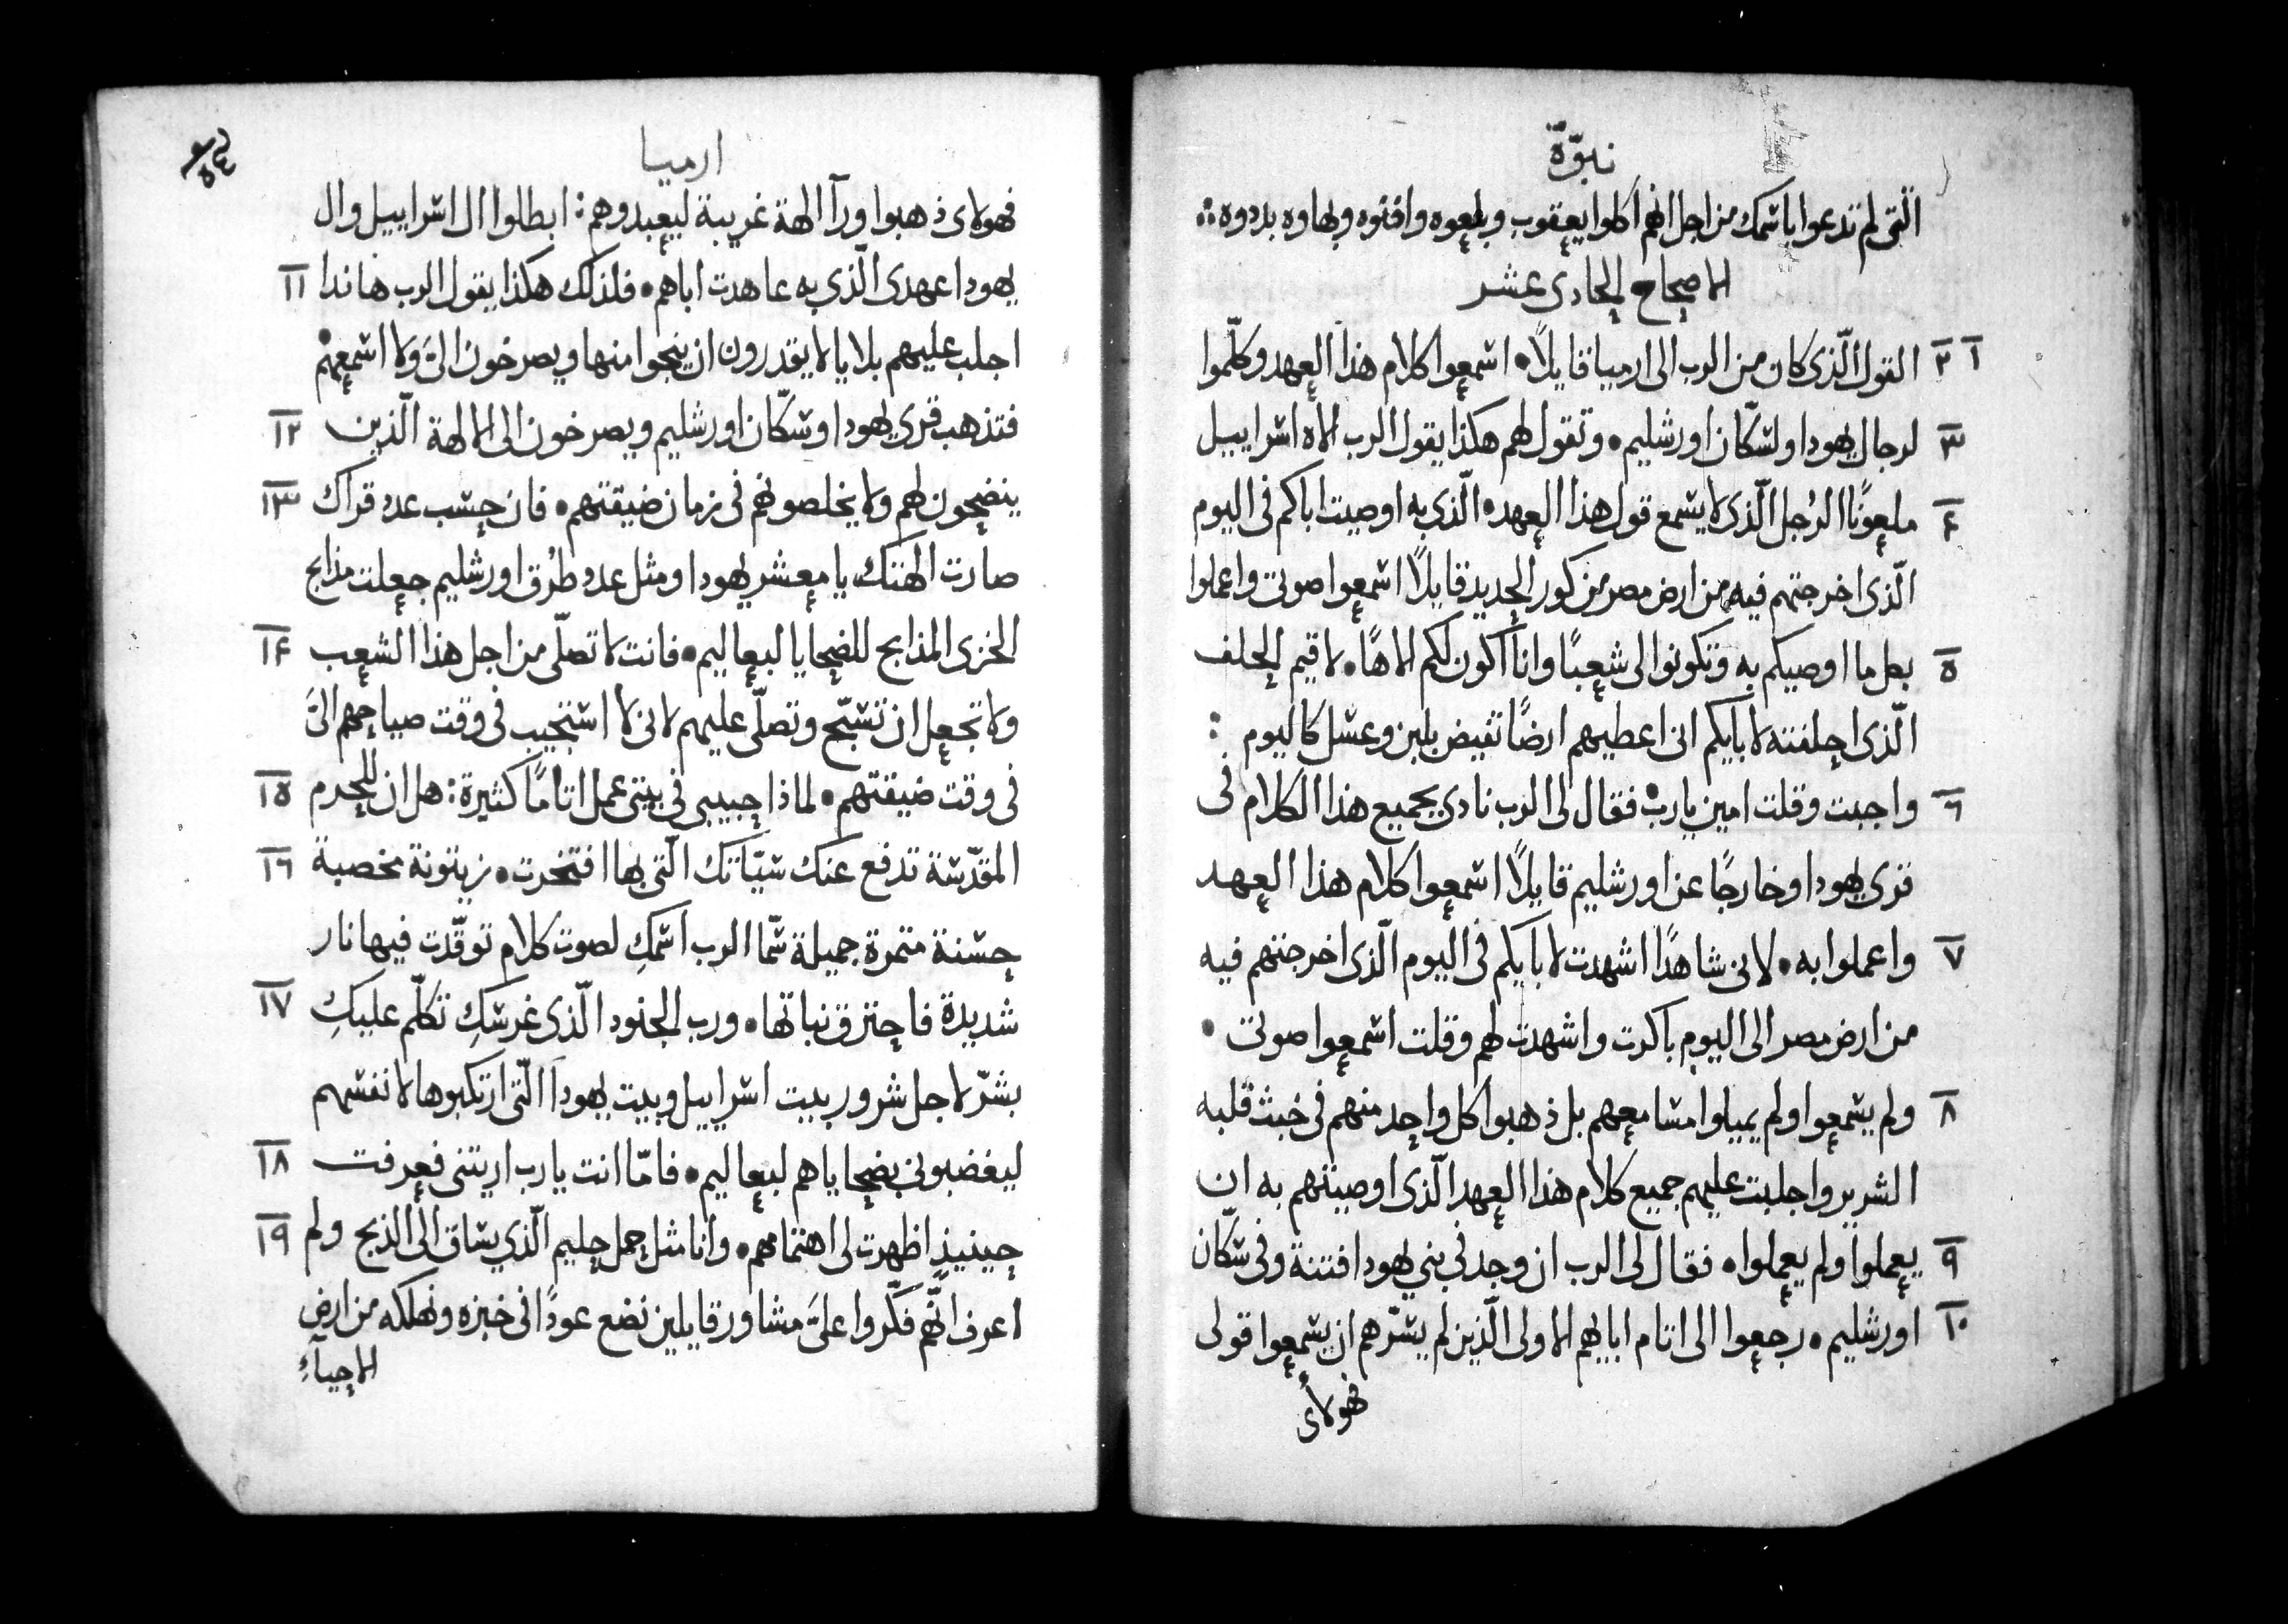 نبوّة
الّتى لم تدعوا باسمك من اجل انهم اكلوا يعقوب وبلعوه وافنوه وبهاوه بددوه
الاصحاح الحادى عشر
١ ٢ القول الّذى كان من الرب الى ارميا قايلًا اسمعوا كلام هذا العهد وكلّموا
٣ لرجال يهودا ولسكّان اورشليم وتقول لهم هكذا يقول الرب الاه اسراييل
٤ ملعونًا الرُجل الّذى لا يسمع قول هذا العهد الّذى به اوصيت اباكم فى اليوم
الّذى اخرجتهم فيه من ارض مصر من كور الحديد قايلًا اسمعوا صوتى واعملوا
٥ بكل ما اوصيكم به وتكونوا لى شعبًا وانا اكون لكم الاهًا لاقيم الحلف
الّذى احلفته لابايكم انى اعطيهم ارضًا تفيض بلبن وعسل كاليوم :
٦ واجبت وقلت امين يارب فقال لى الرب نادى بجميع هذا الكلام فى
قرى يهودا وخارجًا عن اورشليم قايلًا اسمعوا كلام هذا العهد
٧ واعملوا به لانى شاهدًا اشهدت لابايكم فى اليوم الّذى اخرجتهم فيه
من ارض مصر الى اليوم باكرت واشهدت لهم وقلت اسمعوا صوتى
٨ ولم يسمعوا ولم يميلوا مسامعهم بل ذهبوا كل واحد منهم فى خبث قلبه
الشرير واجلبت عليهم جميع كلام هذا العهد الّذى اوصيتهم به ان
٩ يعملوا ولم يعملوا فقال لى الرب ان وجد فى بني يهودا فتنة وفى سكّان
١٠ اورشليم رجعوا الى اثام ابايهم الاولى الّذين لم يسرّهم ان يسمعوا قولى
فهولاى
ارميا
فهولاى ذهبوا ورآ الهة غريبة ليعبدوهم : ابطلوا ال اسراييل وال
يهودا عهدى الّذى به عاهدت اباهم فلذلك هكذا يقول الرب هانذا ١١
اجلب عليهم بلايا لا يقدرون ان ينجوا منها ويصرخون الىَ ولا اسمعهم
فتذهب قرى يهودا وسكّان اورشليم ويصرخون الى الالهة الّذين ١٢
ينضحون لهم ولا يخلصونهم فى زمان ضيقتهم فان حسب عدد قراك ١٣
صارت الهتك يا معشر يهودا ومثل عدد طُرق اورشليم جعلت مذابح
الخزى المذابح للضحايا لبعاليم فانت لا تصلّى من اجل هذا الشعب ١٤
ولا تجعل ان تسبّح وتصلّى عليهم لانى لا استجيب فى وقت صياحهم الىَ
فى وقت ضيقتهم لماذا حبيبى فى بيتى عمل اثامًا كثيرة : هل ان اللحم ١٥
المقدّسة تدفع عنك سيّاتك الّتى بها افتخرت زيتونة مخصبة ١٦
حسنة مثمرة جميلة سمّا الرب اسمكِ لصوت كلام توقّدت فيها نار
شديدة فاحترق نباتها ورب الجنود الّذى غرسكِ تكلّم عليكِ ١٧
بشرّ لاجل شرور بيت اسراييل وبيت يهودا الّتى ارتكبوها لانفسهم
ليغضبونى بضحاياهم لبعاليم فامّا انت يارب اريتنى فعرفت ١٨
حينيذٍ اظهرت لى اهتمامهم وانا مثل حمل حليم الّذي يساق الى الذبح ولم ١٩
اعرف انّهم فكّروا علىَّ مشاور قايلين نضع عودًا فى خبزه ونهلكه من ارض
الاحيآءِ